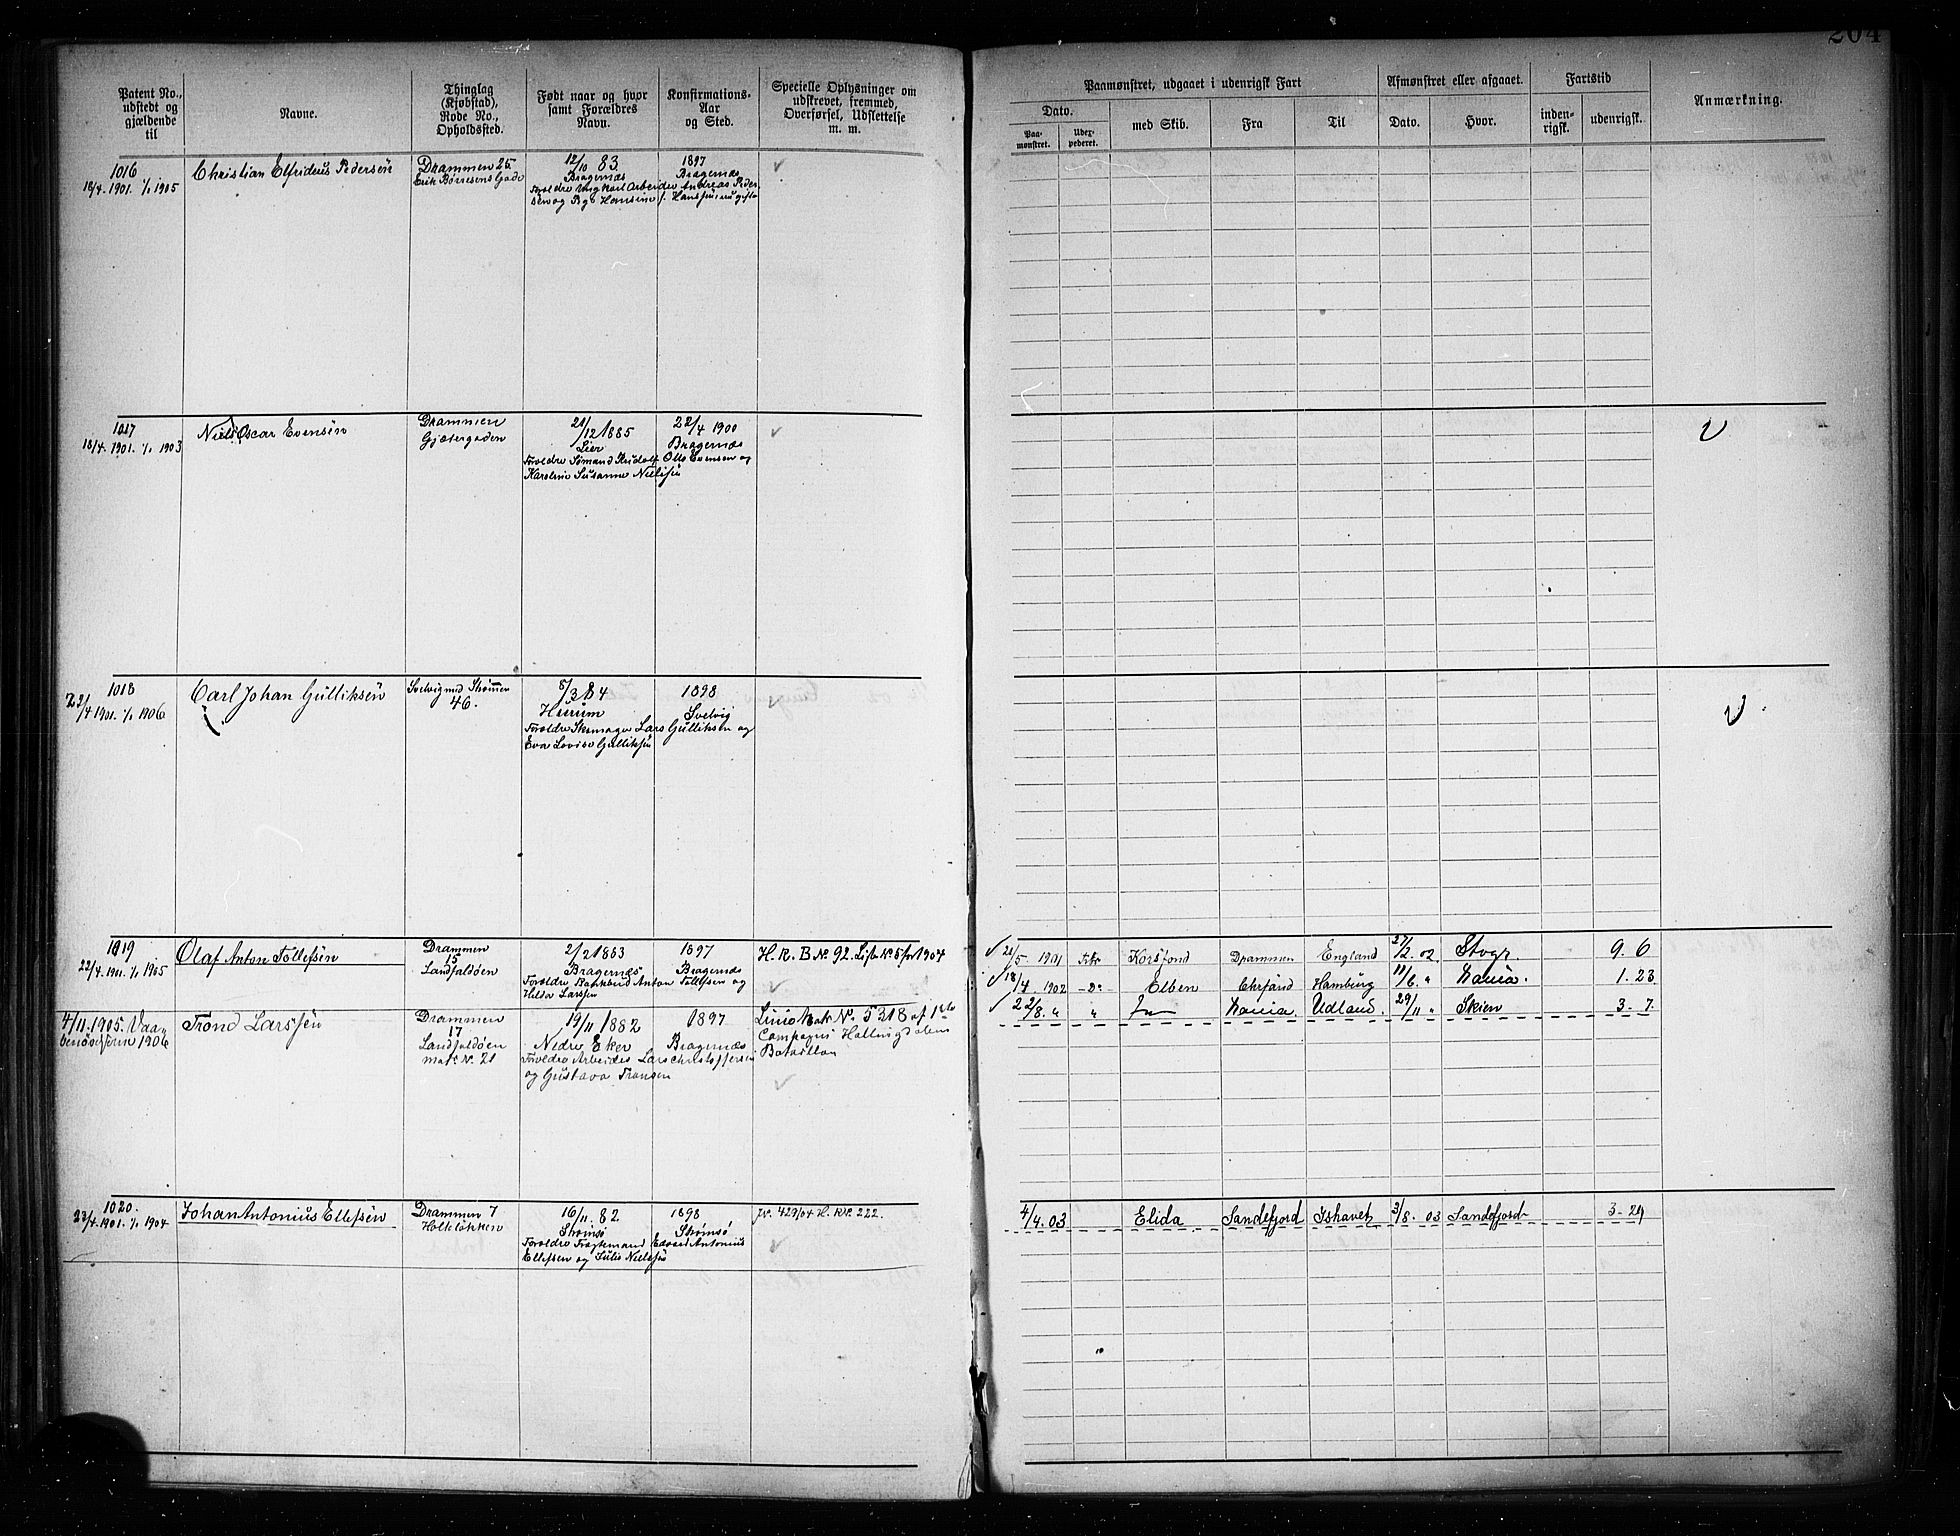 204
Patent No., udstedt og gjældende til
Navne.
Thinglag (Kjøbstad), Rode No., Opholdsted.
Født naar og hvor samt Forældres Navn.
Konfirmations-Aar og Sted.
Specielle Oplysninger om udskrevet, fremmed, Overførsel, Udslettelse m. m.
Paamønstret, udgaaet i udenrigsk Fart
Afmønstret eller afgaaet.
Fartstid
Anmærkning.
Dato.
med Skib.
Fra
Til
Dato.
Hvor.
inden-rigsk.
udenrigsk.
Paa-mønstret.
Udex-pederet.
1016
18/4. 1901. 1/1 1905
Christian Elfriderus Pedersen
Drammen 25
Erik Børresens Gade
12/10 83
Bragernæs
1897
Bragernæs
Foreldre Ungkarl Arbeider Andreas Peder-
sen og Pge Hansine Hanssen, ugifte
1017
18/4. 1901. 1/1 1903
Niels Oscar Evensen
Drammen
Gjætergaden
21/12 1885
Lier
22/4 1900
Bragernæs
Foreldre Sømand Rudolf Otto Evensen og
Karoline Susanne Nielssen
1018
22/4 1901. 1/1 1906
Carl Johan Gulliksen
Svelvig med Strømmen
46.
8/3 84
Hurum
1898
Svelvig
Foreldre Skomager Lars Gulliksen og
Eva Lovise Gulliksen
1019
22/4. 1901. 1/1 1905
Olaf Anton Tollefsen
Drammen
15
Landfaldøen
2/2 1883
Bragernæs
1897
Bragernæs
Foreldre Bankbud Anton Tollefsen og
Hilda Larssen
H. R. B No 92. Liste No 5/1904
21/5. 1901
Korsfond
Drammen
England
27/2. 02
Stvgr.
9. 6
18/4. 1902
-Do
Elben
Chrsand
Hamburg
11/6. "
Nania.
1. 23
22/8. "
"
Nania
Udland.
29/11 "
Skien
3. 7
4/11. 1905. Vaa-
benøvelserne 1906
Trond Larssen
Drammen
17
Landfaldøen
Matr. No. 21
19/11 1882
Nedre Eker
1897
Bragernæs
Foreldre Arbeider Lars Christoffersen
og Gustava Fransen
Linie No. 5318 af 1ste
Compagni Hallingdalens
Bataillon
1020.
23/4. 1901. 1/1 1904
Johan Antonius Ellefsen
Drammen 7
Holteløkken
16/11. 82
Strømsø
1898
Strømsø
Foreldre Fragtmand Edvard Antonius
Ellefsen og Julie Nielssen
Jr. 429/04 H. R. No. 222.
4/4. 03
Elida
Sandefjord
Ishavet
3/8. 03
Sandefjord
3. 29